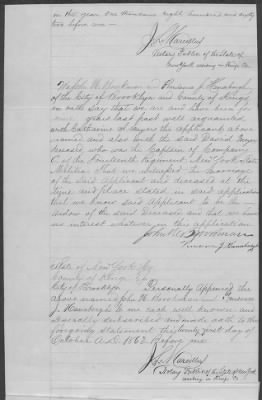 in the year one thousand eight hundred and sixty
two before me —
Notary Public of the State of
New York residing in Kings Co.
We John W. Brockman and
of the City of Brooklyn and County of Kings
on oath say that we are and have been for
years last past well acquainted
with Catharine the applicant above
named and also with the said David
deceased who was the Captain of Company
C of the Fourteenth Regiment New York State
Militia That we witnessed the marriage
of the said Applicant and deceased at the
time and place stated in said application
that we know said Applicant to be the
widow of the said deceased and that we have
no interest whatever in this application
State of New York
County of Kings
City of Brooklyn Personally appeared the
above named John W. Brockman and
J. to me each well known and
severally subscribed and made oath to the
foregoing statement this twenty first day of
October A.D. 1862 Before me
Notary Public of the State of New York
residing in Kings Co.